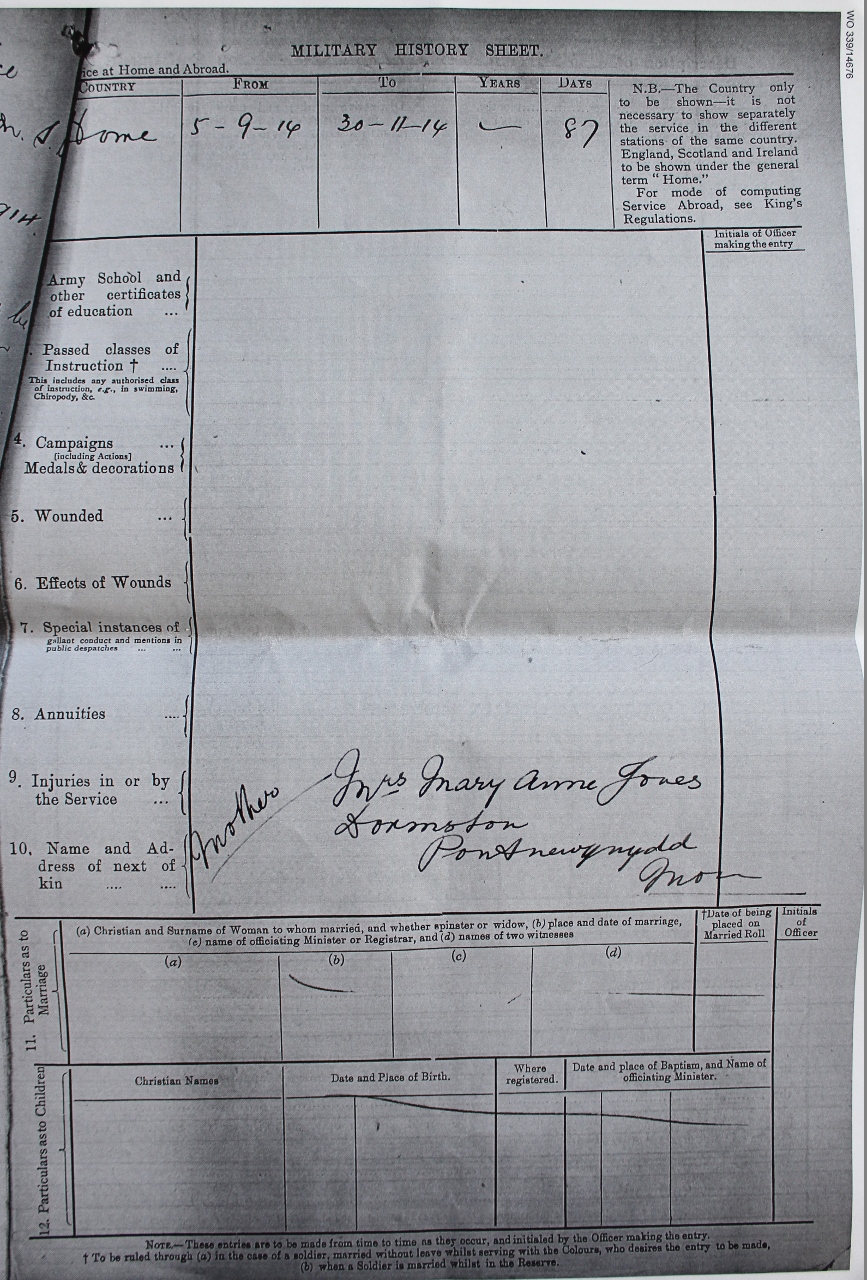 WO 339/14676
MILITARY HISTORY SHEET.
ice at Home and Abroad.
COUNTRY FROM TO YEARS DAYS
Home 5-9-14 30-11-14 — 87
N.B.—The Country only
to be shown—it is not
necessary to show separately
the service in the different
stations of the same country.
England, Scotland and Ireland
to be shown under the general
term "Home."
For mode of computing
Service Abroad, see King's
Regulations.
Initials of Officer
making the entry
Army School and
other certificates
of education ...
Passed classes of
Instruction † ....
This includes any authorised class
of instruction, e.g., in swimming,
Chiropody, &c.
4. Campaigns ...
[including Actions]
Medals & decorations
5. Wounded ...
6. Effects of Wounds
7. Special instances of
gallant conduct and mentions in
public despatches ... ...
8. Annuities ....
9. Injuries in or by
the Service ...
10. Name and Ad-
dress of next of
kin .... ....
Mother
Mrs Mary Anne Jones
Dormston
Pontnewynydd
Mon
11. Particulars as to
Marriage
(a) Christian and Surname of Woman to whom married, and whether spinster or widow, (b) place and date of marriage,
(c) name of officiating Minister or Registrar, and (d) names of two witnesses
†Date of being
placed on
Married Roll
Initials
of
Officer
(a) (b) (c) (d)
12. Particulars as to Children
Christian Names
Date and Place of Birth.
Where
registered.
Date and place of Baptism, and Name of
officiating Minister.
NOTE.—These entries are to be made from time to time as they occur, and initialed by the Officer making the entry.
† To be ruled through (a) in the case of a soldier, married without leave whilst serving with the Colours, who desires the entry to be made,
(b) when a Soldier is married whilst in the Reserve.